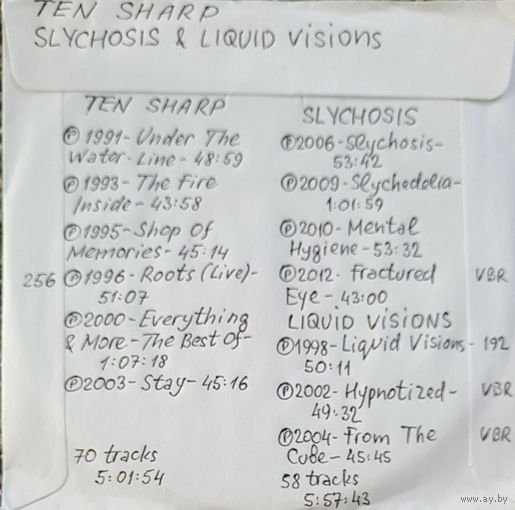 TEN SHARP
SLYCHOSIS & LIQUID Visions
TEN SHARP
Ⓟ 1991- Under The
Water- Line - 48:59
Ⓟ 1993- The Fire
Inside - 43:58
Ⓟ 1995- Shop Of
Memories- 45:14
256 Ⓟ 1996- Roots (Live)-
51:07
Ⓟ 2000- Everything
& More - The Best Of-
1:07:18
Ⓟ 2003- Stay- 45:16
70 tracks
5:01:54
SLYCHOSIS
Ⓟ 2006- Slychosis-
53:42
Ⓟ 2009- Slychedelia-
1:01:59
Ⓟ 2010- Mental
Hygiene- 53:32
Ⓟ 2012- Fractured VBR
Eye- 43:00
LIQUID VISIONS
Ⓟ 1998- Liquid Visions- 192
50:11
Ⓟ 2002- Hypnotized- VBR
49:32
Ⓟ 2004- From The VBR
Cube- 45:45
58 tracks
5:57:43
www.ay.by